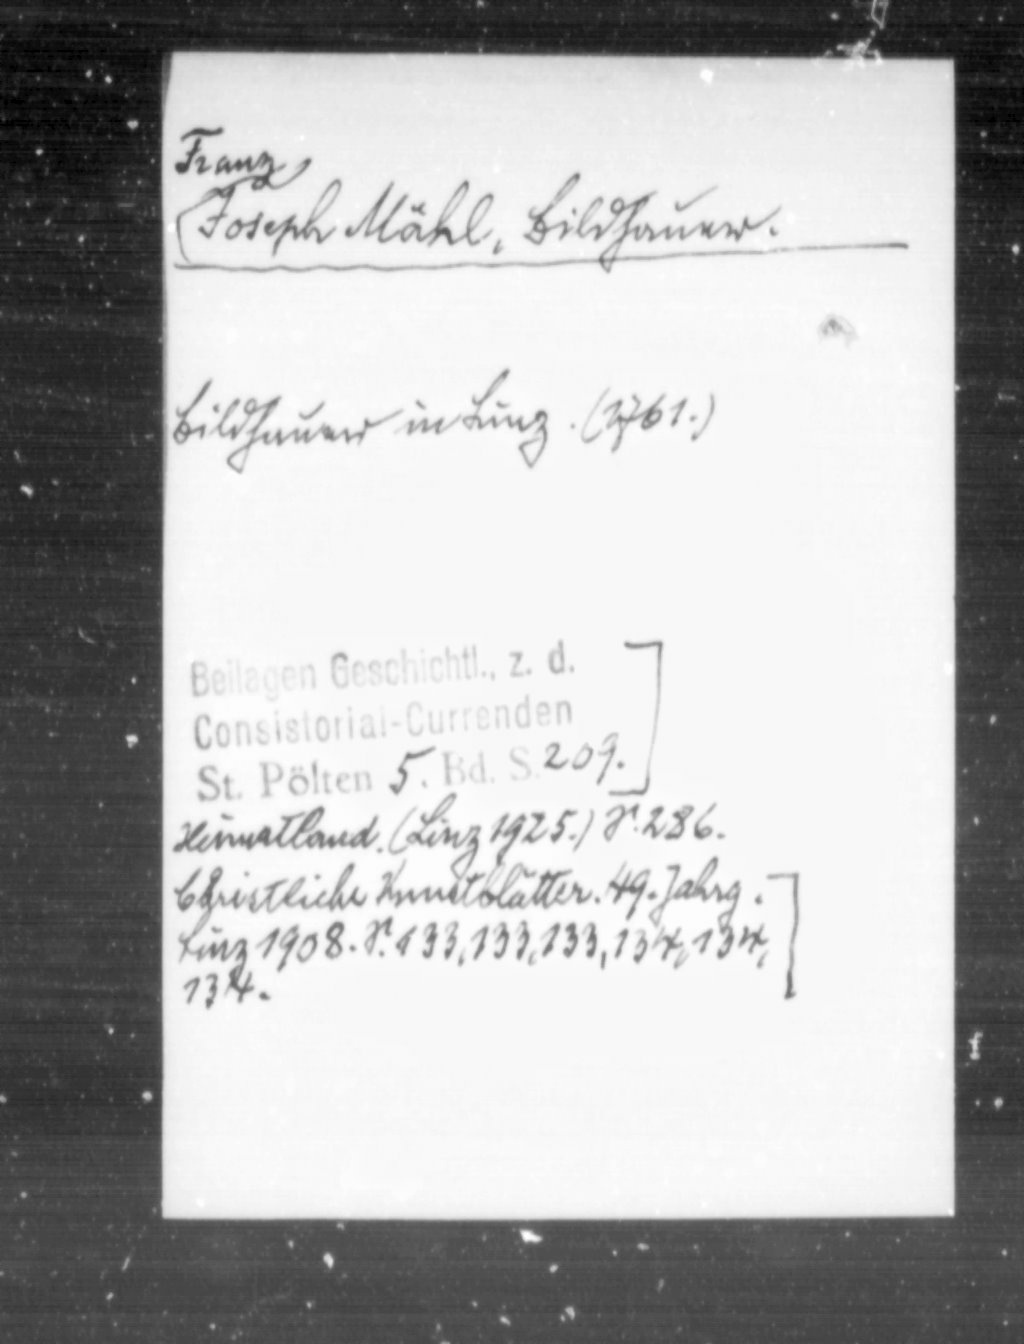 Franz
(Joseph Mähl, Bildhauer.
Bildhauer in Linz. (1761.)
Beilagen Geschichtl., z. d.
Consistorial-Currenden
St. Pölten 5. Bd. S. 209.
Heimatland. (Linz 1925.) S. 286.
Christliche Kunstblätter. 49. Jahrg.
Linz 1908. S. 133, 133, 133, 134, 134,
134.